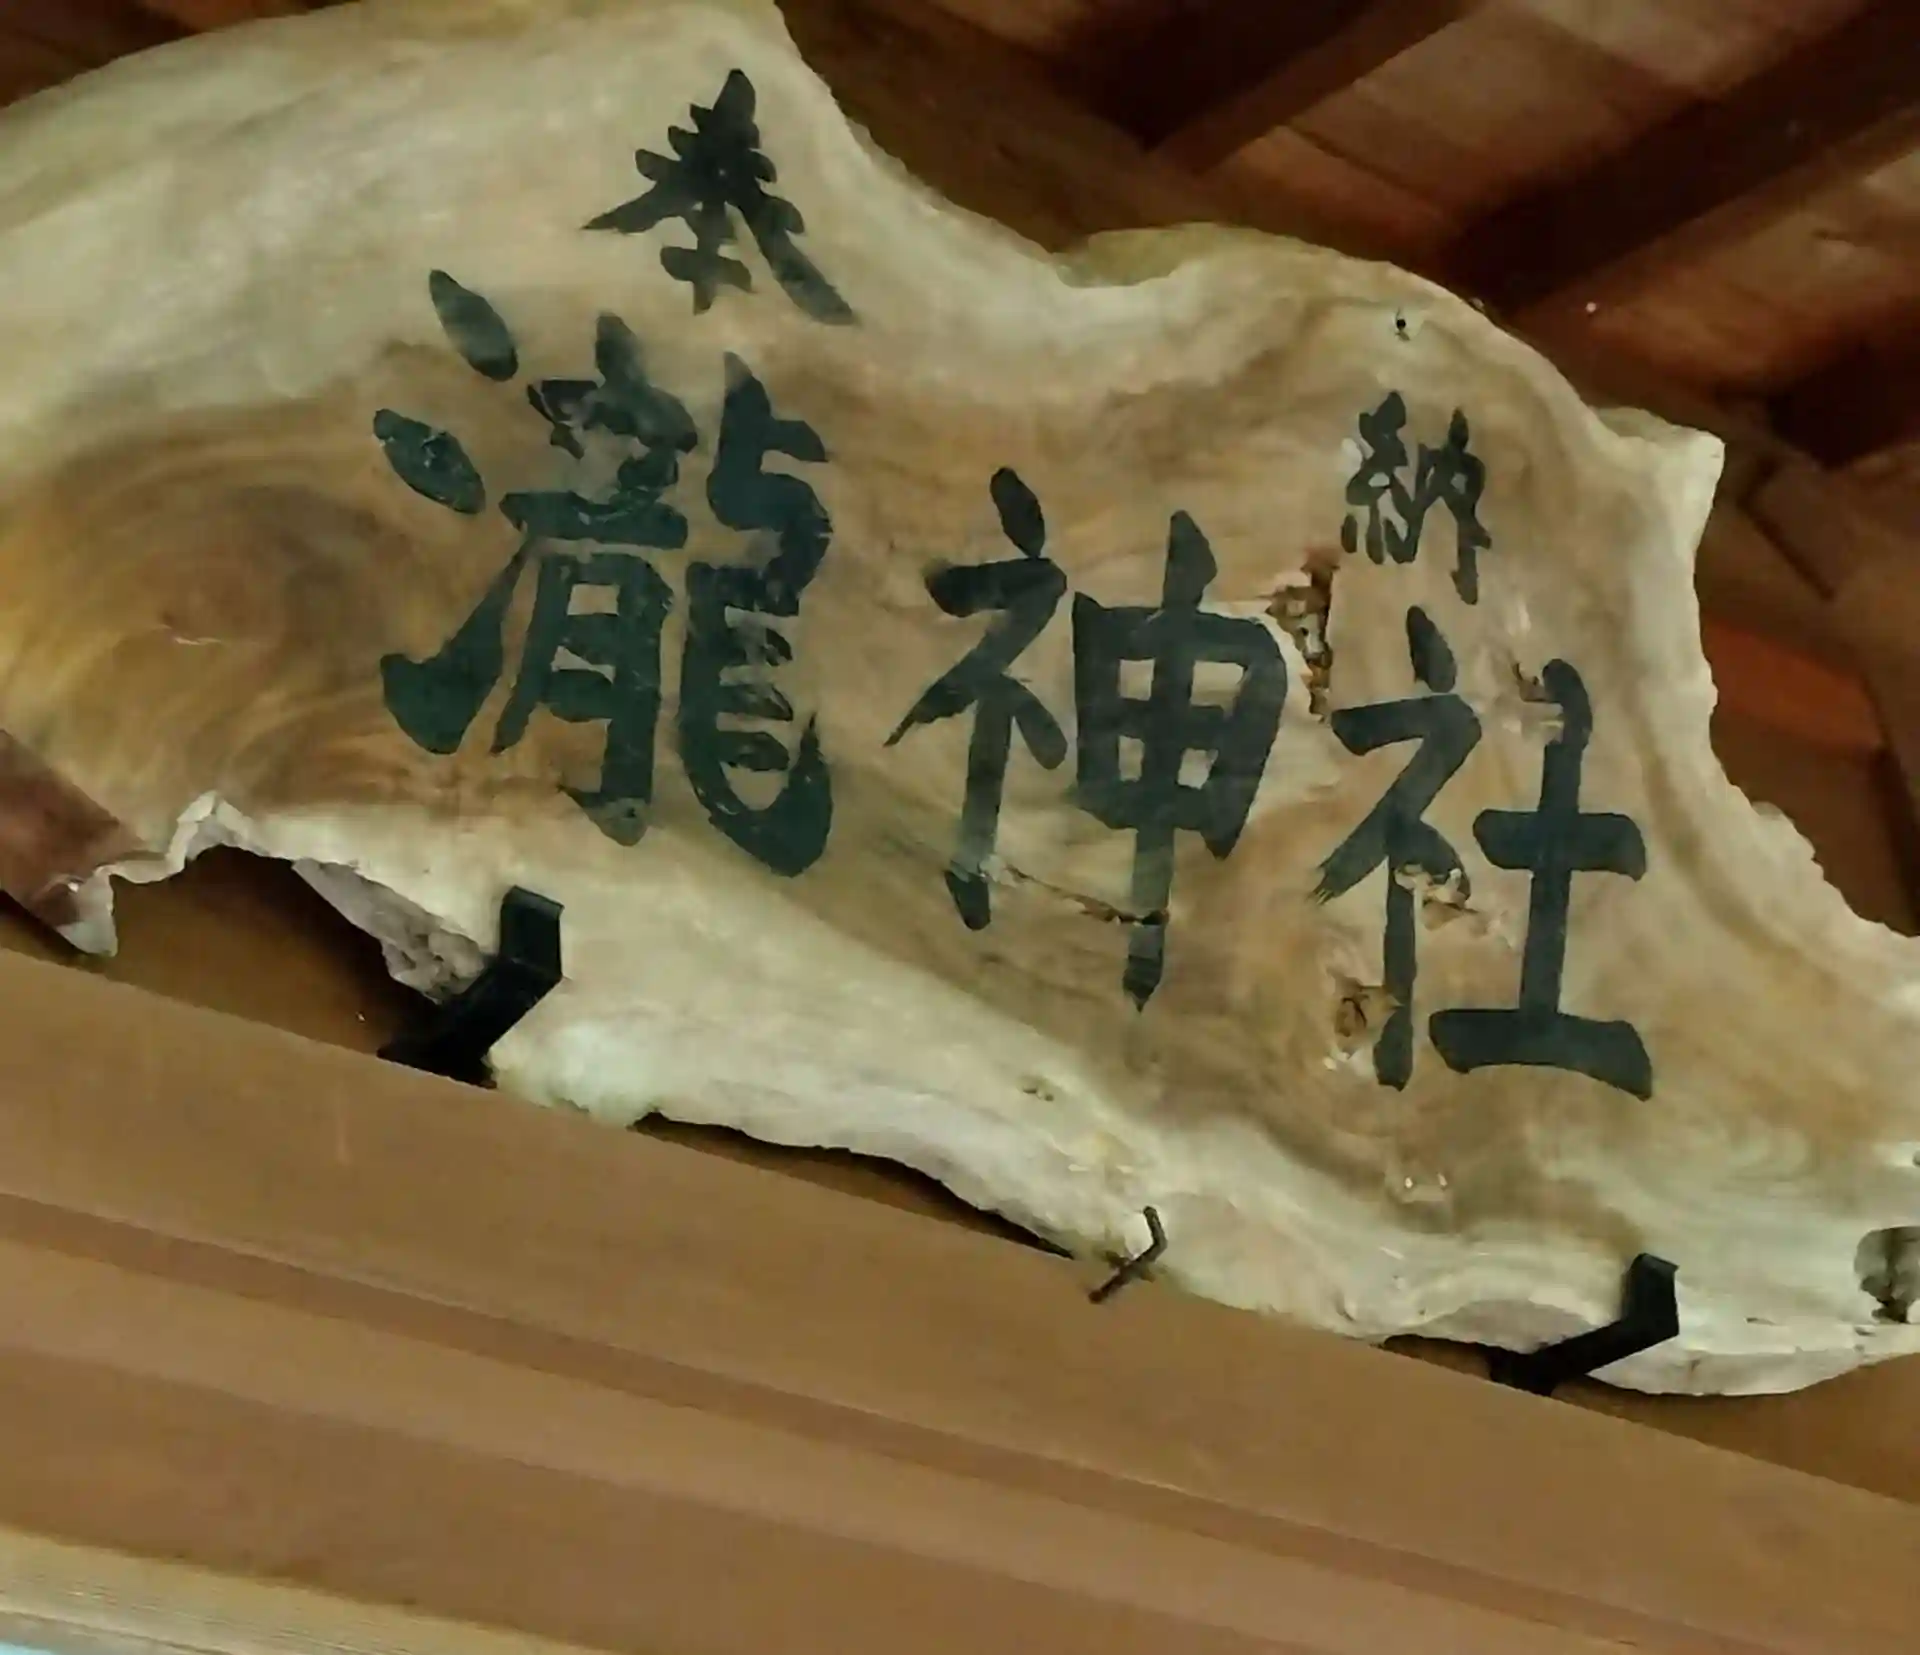 奉納
瀧神社